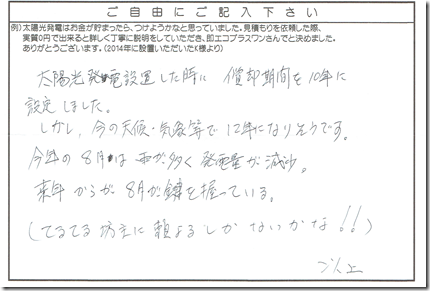 ご自由にご記入下さい
例）太陽光発電はお金が貯まったら、つけようかなと思っていました。見積もりを依頼した際、
実質0円で出来ると詳しく丁寧に説明をしていただき、即エコプラスワンさんでと決めました。
ありがとうございます。（2014年に設置いただいたK様より）
太陽光発電設置した時に 償却期間を10年に
設定しました。
しかし、今の天候・気象等で12年になりそうです。
今年の8月は雨が多く発電量が減少。
来年からが8月が鍵を握っている。
（てるてる坊主に頼よるしかないかな!!）